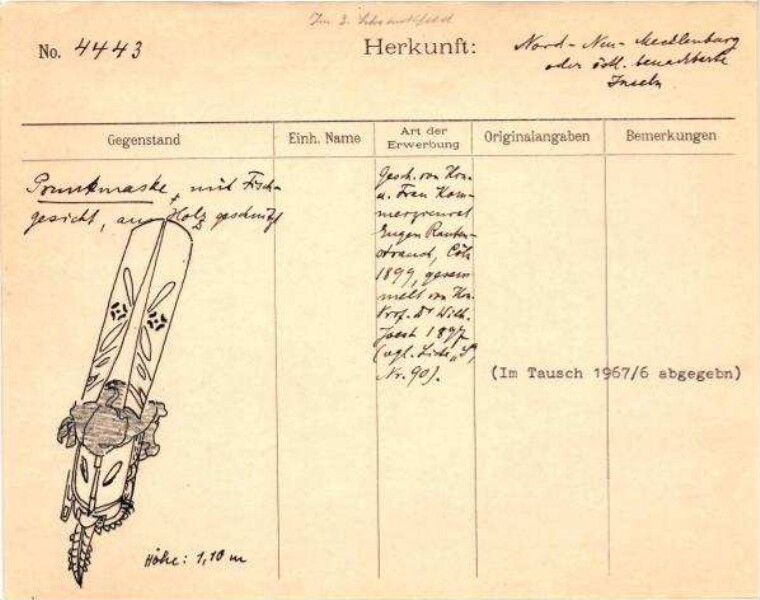 Im 3.
No. 4443
Herkunft:
Nord-Neu-Mecklenburg
oder östl. benachbarte
Inseln
Gegenstand
Einh. Name
Art der
Erwerbung
Originalangaben
Bemerkungen
Prunkmaske, mit Fisch-
gesicht, aus Holz geschnitzt
Gesch. von Hrn.
u. Frau Kom-
merzienrat
Eugen Rauten-
strauch, Cöln
1899, gesam-
melt von Hrn.
Prof. Dr Wilh.
Joest 1897
(vgl. Liste „S",
Nr. 90).
(Im Tausch 1967/6 abgegebn)
Höhe: 1,10 m